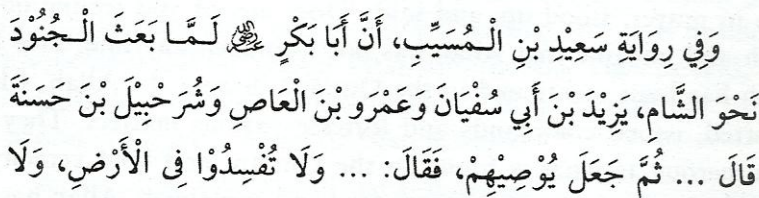 وَفِي رِوَايَةِ سَعِيْدِ بْنِ الْـمُسَيِّبِ، أَنَّ أَبَا بَكْرٍ ؓ لَـمَّـا بَعَثَ الْـجُنُوْدَ
نَحْوَ الشَّامِ، يَزِيْدَ بْنَ أَبِي سُفْيَانَ وَعَمْرَو بْنَ الْعَاصِ وَشُرَحْبِيْلَ بْنَ حَسَنَةَ
قَالَ ... ثُمَّ جَعَلَ يُوْصِيْهِمْ، فَقَالَ: ... وَلَا تُفْسِدُوْا فِى الْأَرْضِ، وَلَا